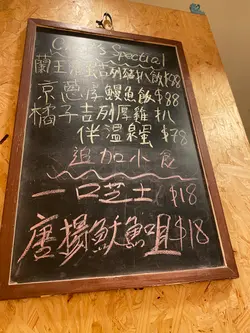 Special
蘭王 吉列豬扒飯 $98
京蔥厚鰻魚飯 $88
橘子吉列厚雞扒
伴溫泉蛋 $78
追加小食
一口芝士 $18
唐揚魷魚咀 $18